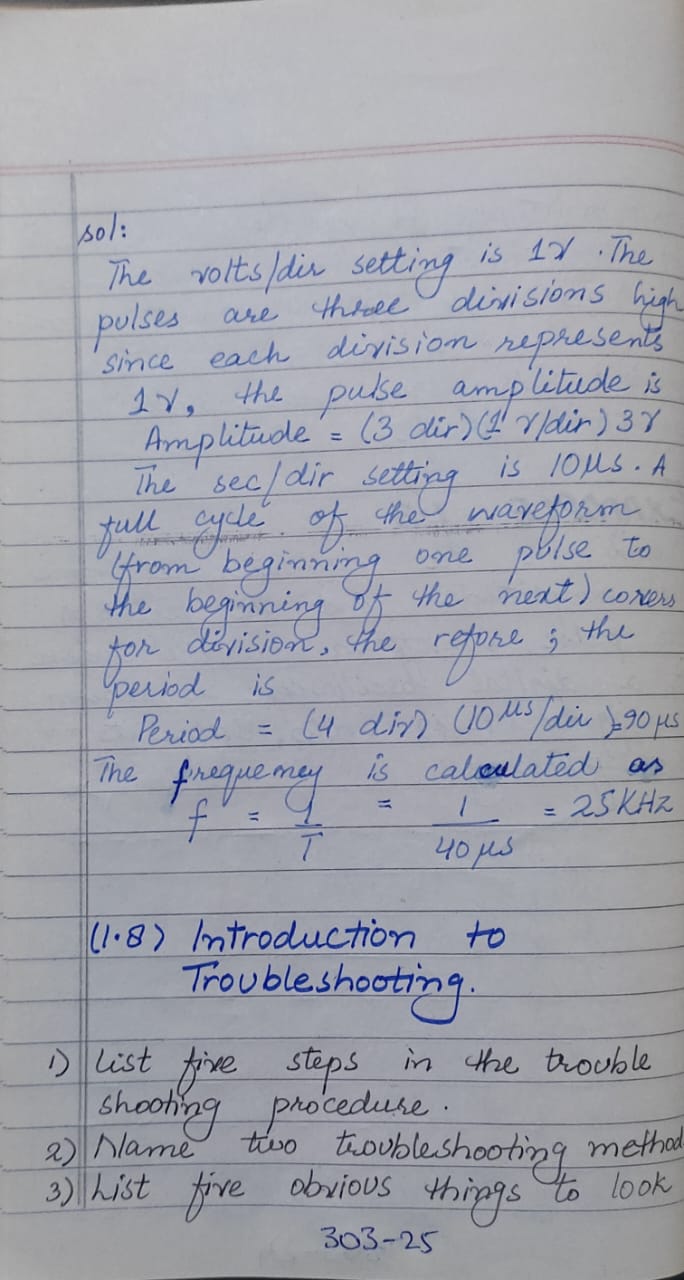 sol:
The volts/div setting is 1V. The
pulses are three divisions high
since each division represents
1V, the pulse amplitude is
Amplitude = (3 div)(1 V/div) 3V
The sec/div setting is 10µs. A
full cycle of the waveform
(from beginning one pulse to
the beginning of the next) covers
for division, the refore ; the
period is
Period = (4 div) (10 µs/div)=90 µs
The frequency is calculated as
f = 1/T = 1/40 µs = 25KHz
(1.8) Introduction to
Troubleshooting.
1) List five steps in the trouble
shooting procedure.
2) Name two troubleshooting method
3) List five obvious things to look
303-25